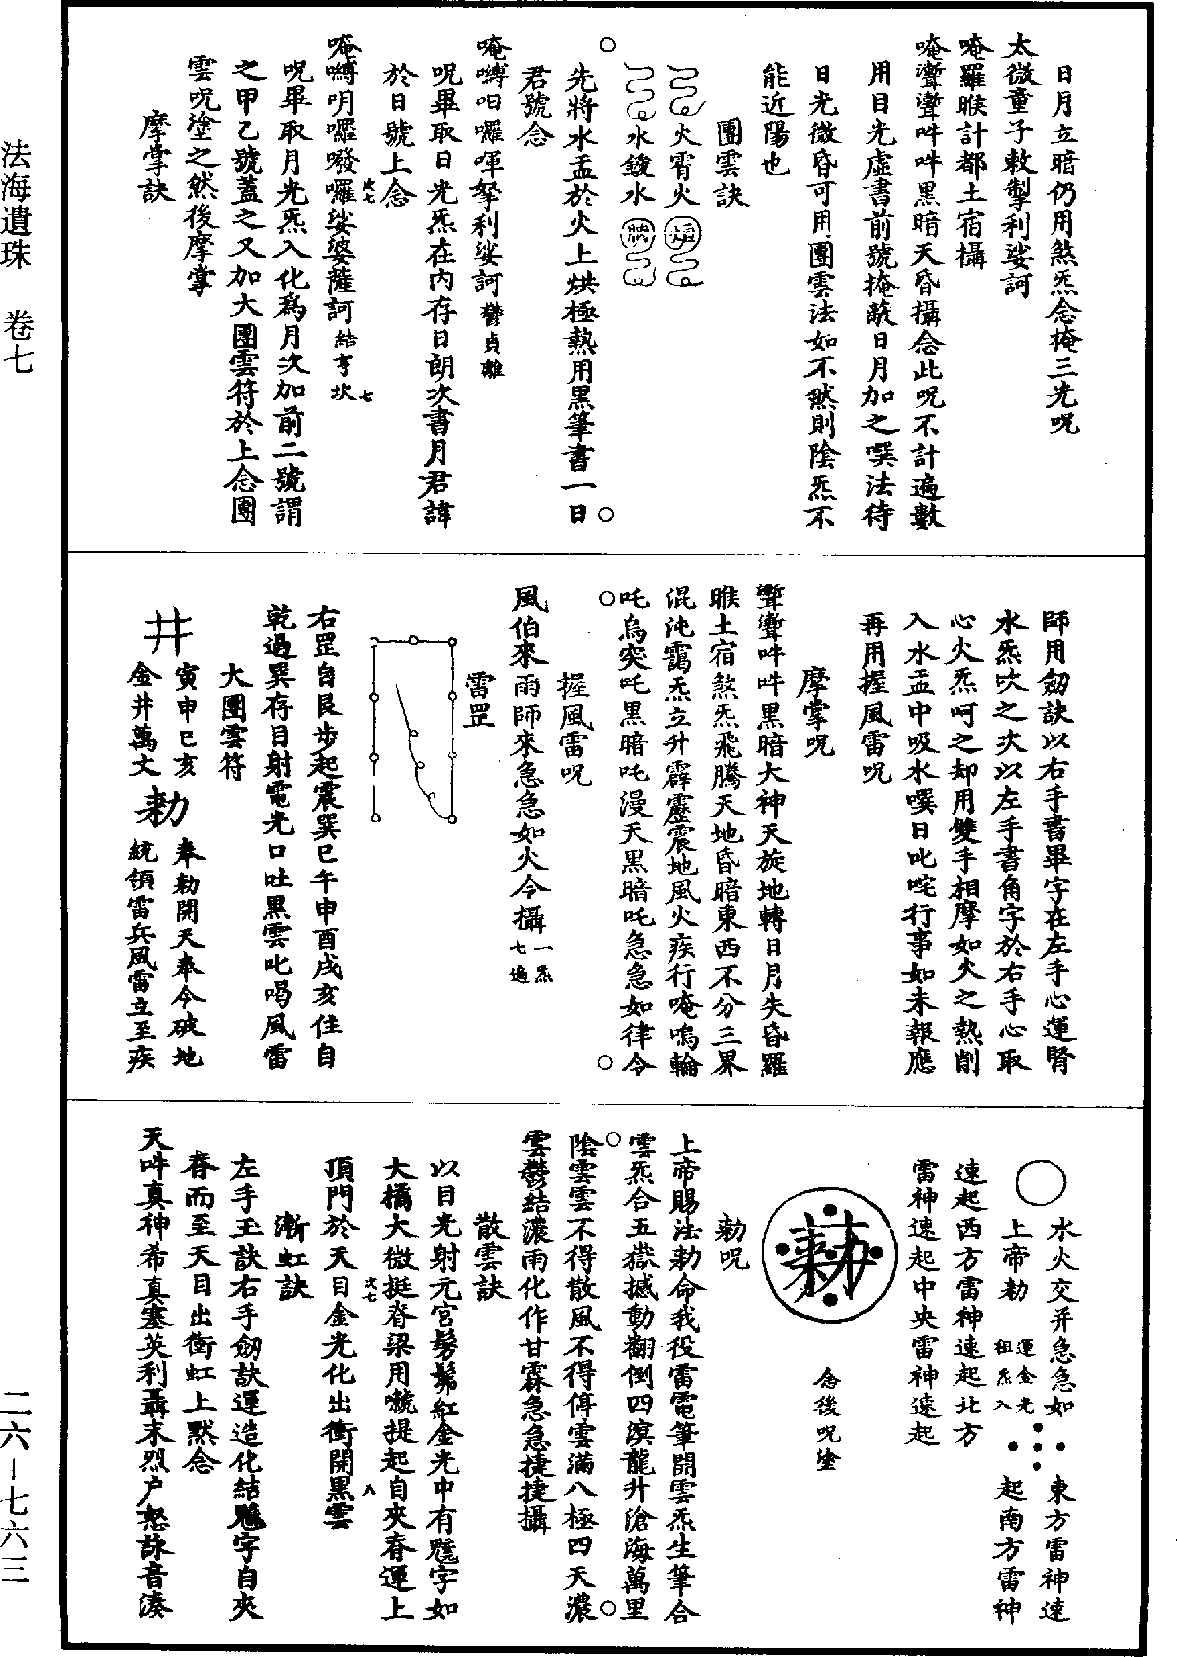 法海遺珠　卷七
二六—七六三
日月立暗仍用煞炁念掩三光呪
太微童子敕掣利娑訶
唵羅睺計都土宿攝
唵䨴䨴吽吽黑暗天昏攝念此呪不計遍數
用目光虛書前號掩蔽日月加之噀法待
日光微昏可用團雲法如不然則陰炁不
能近陽也
團雲訣
火霄火
水鍐水
先將水盂於火上烘極熱用黑筆書一日
君號念
唵嚩囉㖇拏利娑訶鬱貞離
呪畢取日光炁在內存日朗次書月君諱
於日號上念
唵嚩囉囉娑婆薩訶結亨坎七
呪畢取月光炁入化爲月次加前二號謂
之甲乙號蓋之又加大團雲符於上念團
雲呪塗之然後摩掌
摩掌訣
師用劒訣以右手書畢字在左手心運腎
水炁吹之次以左手書角字於右手心取
心火炁呵之却用雙手相摩如火之熱削
入水盂中吸水噀日叱咤行事如未報應
再用握風雷呪
摩掌呪
䨴䨴吽吽黑暗大神天旋地轉日月失昏羅
睺土宿煞炁飛騰天地昏暗東西不分三界
混沌靄炁立升霹靂震地風火疾行唵嗚輪
吒烏突吒黑暗吒漫天黑暗吒急急如律令
握風雷呪
風伯來雨師來急急如火令攝一炁七遍
雷罡
右罡自艮步起震巽巳午申酉戌亥住自
乾過巽存目射電光口吐黑雲叱喝風雷
大團雲符
井
寅申巳亥
金井萬丈
勅
奉勅開天奉令破地
統領雷兵風雷立至疾
水火交并急急如
東方雷神速
上帝勅
運金光
祖炁入
起南方雷神
速起西方雷神速起北方
雷神速起中央雷神速起
勅
念後呪塗
勅呪
上帝賜法勅命我役雷電筆開雲炁生筆合
雲炁合五嶽撼動翻倒四溟龍升滄海萬里
陰雲雲不得散風不得停雲滿八極四天濃
雲鬱結濃雨化作甘霖急急捷捷攝
散雲訣
以目光射元宮髣髴紅金光中有字如
大橘大微挺脊梁用提起自夾脊運上
頂門於天目金光化出衝開黑雲
漸虹訣
左手玉訣右手劒訣運造化結字自夾
脊而至天目出衝虹上默念
天吽真神希真塞英利聶末烈戶怒詠音湊